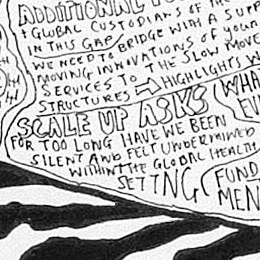 ADDITIONAL
+ GLOBAL CUSTODIANS OF THE
IN THIS GAP
WE NEED TO BRIDGE WITH A SUPP
MOVING INNOVATIONS OF YOUR
SERVICES TO THE SLOW MOVE
STRUCTURES → HIGHLIGHTS W
SCALE UP ASKS
(WHA
EV
FOR TOO LONG HAVE WE BEEN
SILENT AND FELT UNDERMINED
WITHIN THE GLOBAL HEALTH
SETTING
FUND
MEN